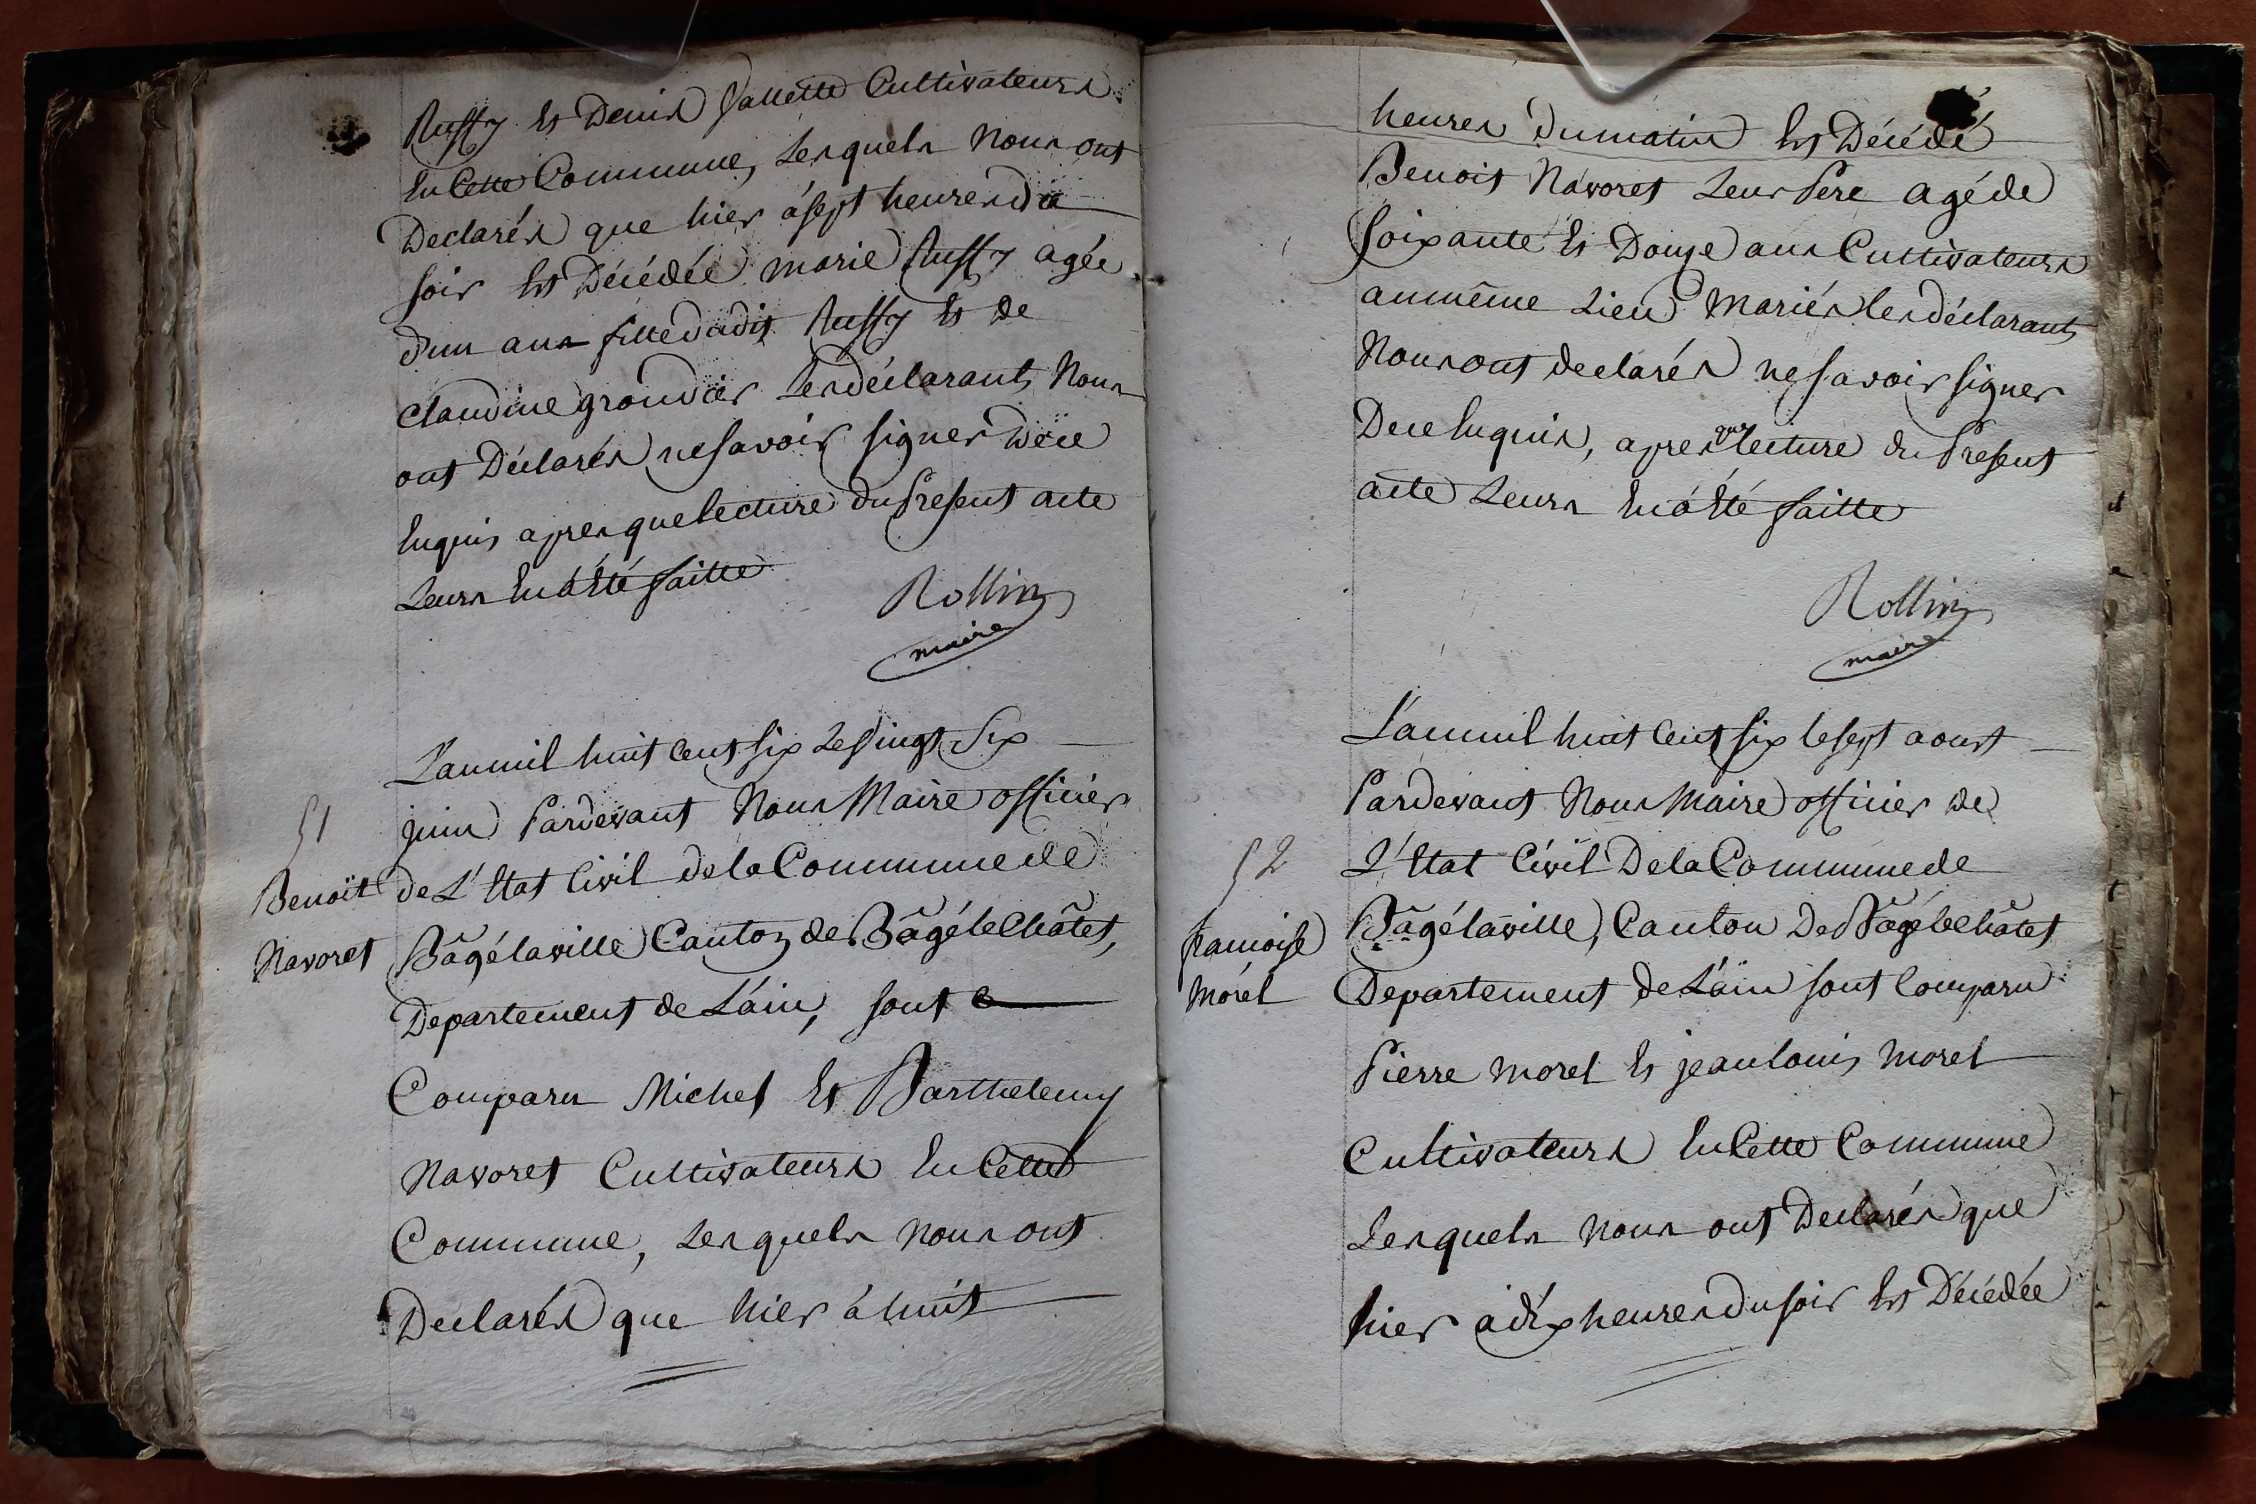 Ruffy et Denis Vallette Cultivateurs
En Cette Commune, Lesquels Nous ont
Declarés que hier à sept heures du
soir est Décédée marie Ruffy agée
d'un ans fille dudit Ruffy et de
Claudine grondier Les déclarants Nous
ont Déclarés ne savoir signer De ce
Enquis apres que lecture du Present acte
Leurs En á Eté faitte
Rollin
maire
L'an mil huit Cent six Le Vingt Six
51
juin Pardevant Nous Maire officier
Benoit
de L'Etat Civil de la Commune de
Navoret
Bâgé la ville Canton de Bâgé le Châtel,
Departement de L'ain, sont
Comparu Michel Et Barthelemy
Navoret Cultivateurs En Cette
Commune, Lesquels nous ont
Declarés que hier à huit
heures du matin Est Décédé
Benoit Navoret Leur Pere agé de
soixante Et Douze ans Cultivateurs
au même Lieu Mariés les déclarants
Nous ont declarés ne savoir signer
De ce Enquis, apres que lecture du Present
acte Leurs En á Eté faitte
Rollin
maire
L'an mil huit Cent six le sept aoust
Pardevant Nous Maire officier de
52
L'Etat Civil De la Commune de
francoise
Bâgé la ville, Canton De Bâgé le Châtel
Morel
Departement de L'ain sont Comparu
Pierre morel Et jean louis morel
Cultivateurs En Cette Commune
Lesquels nous ont Declarés que
hier à dix heures du soir Est Décédée